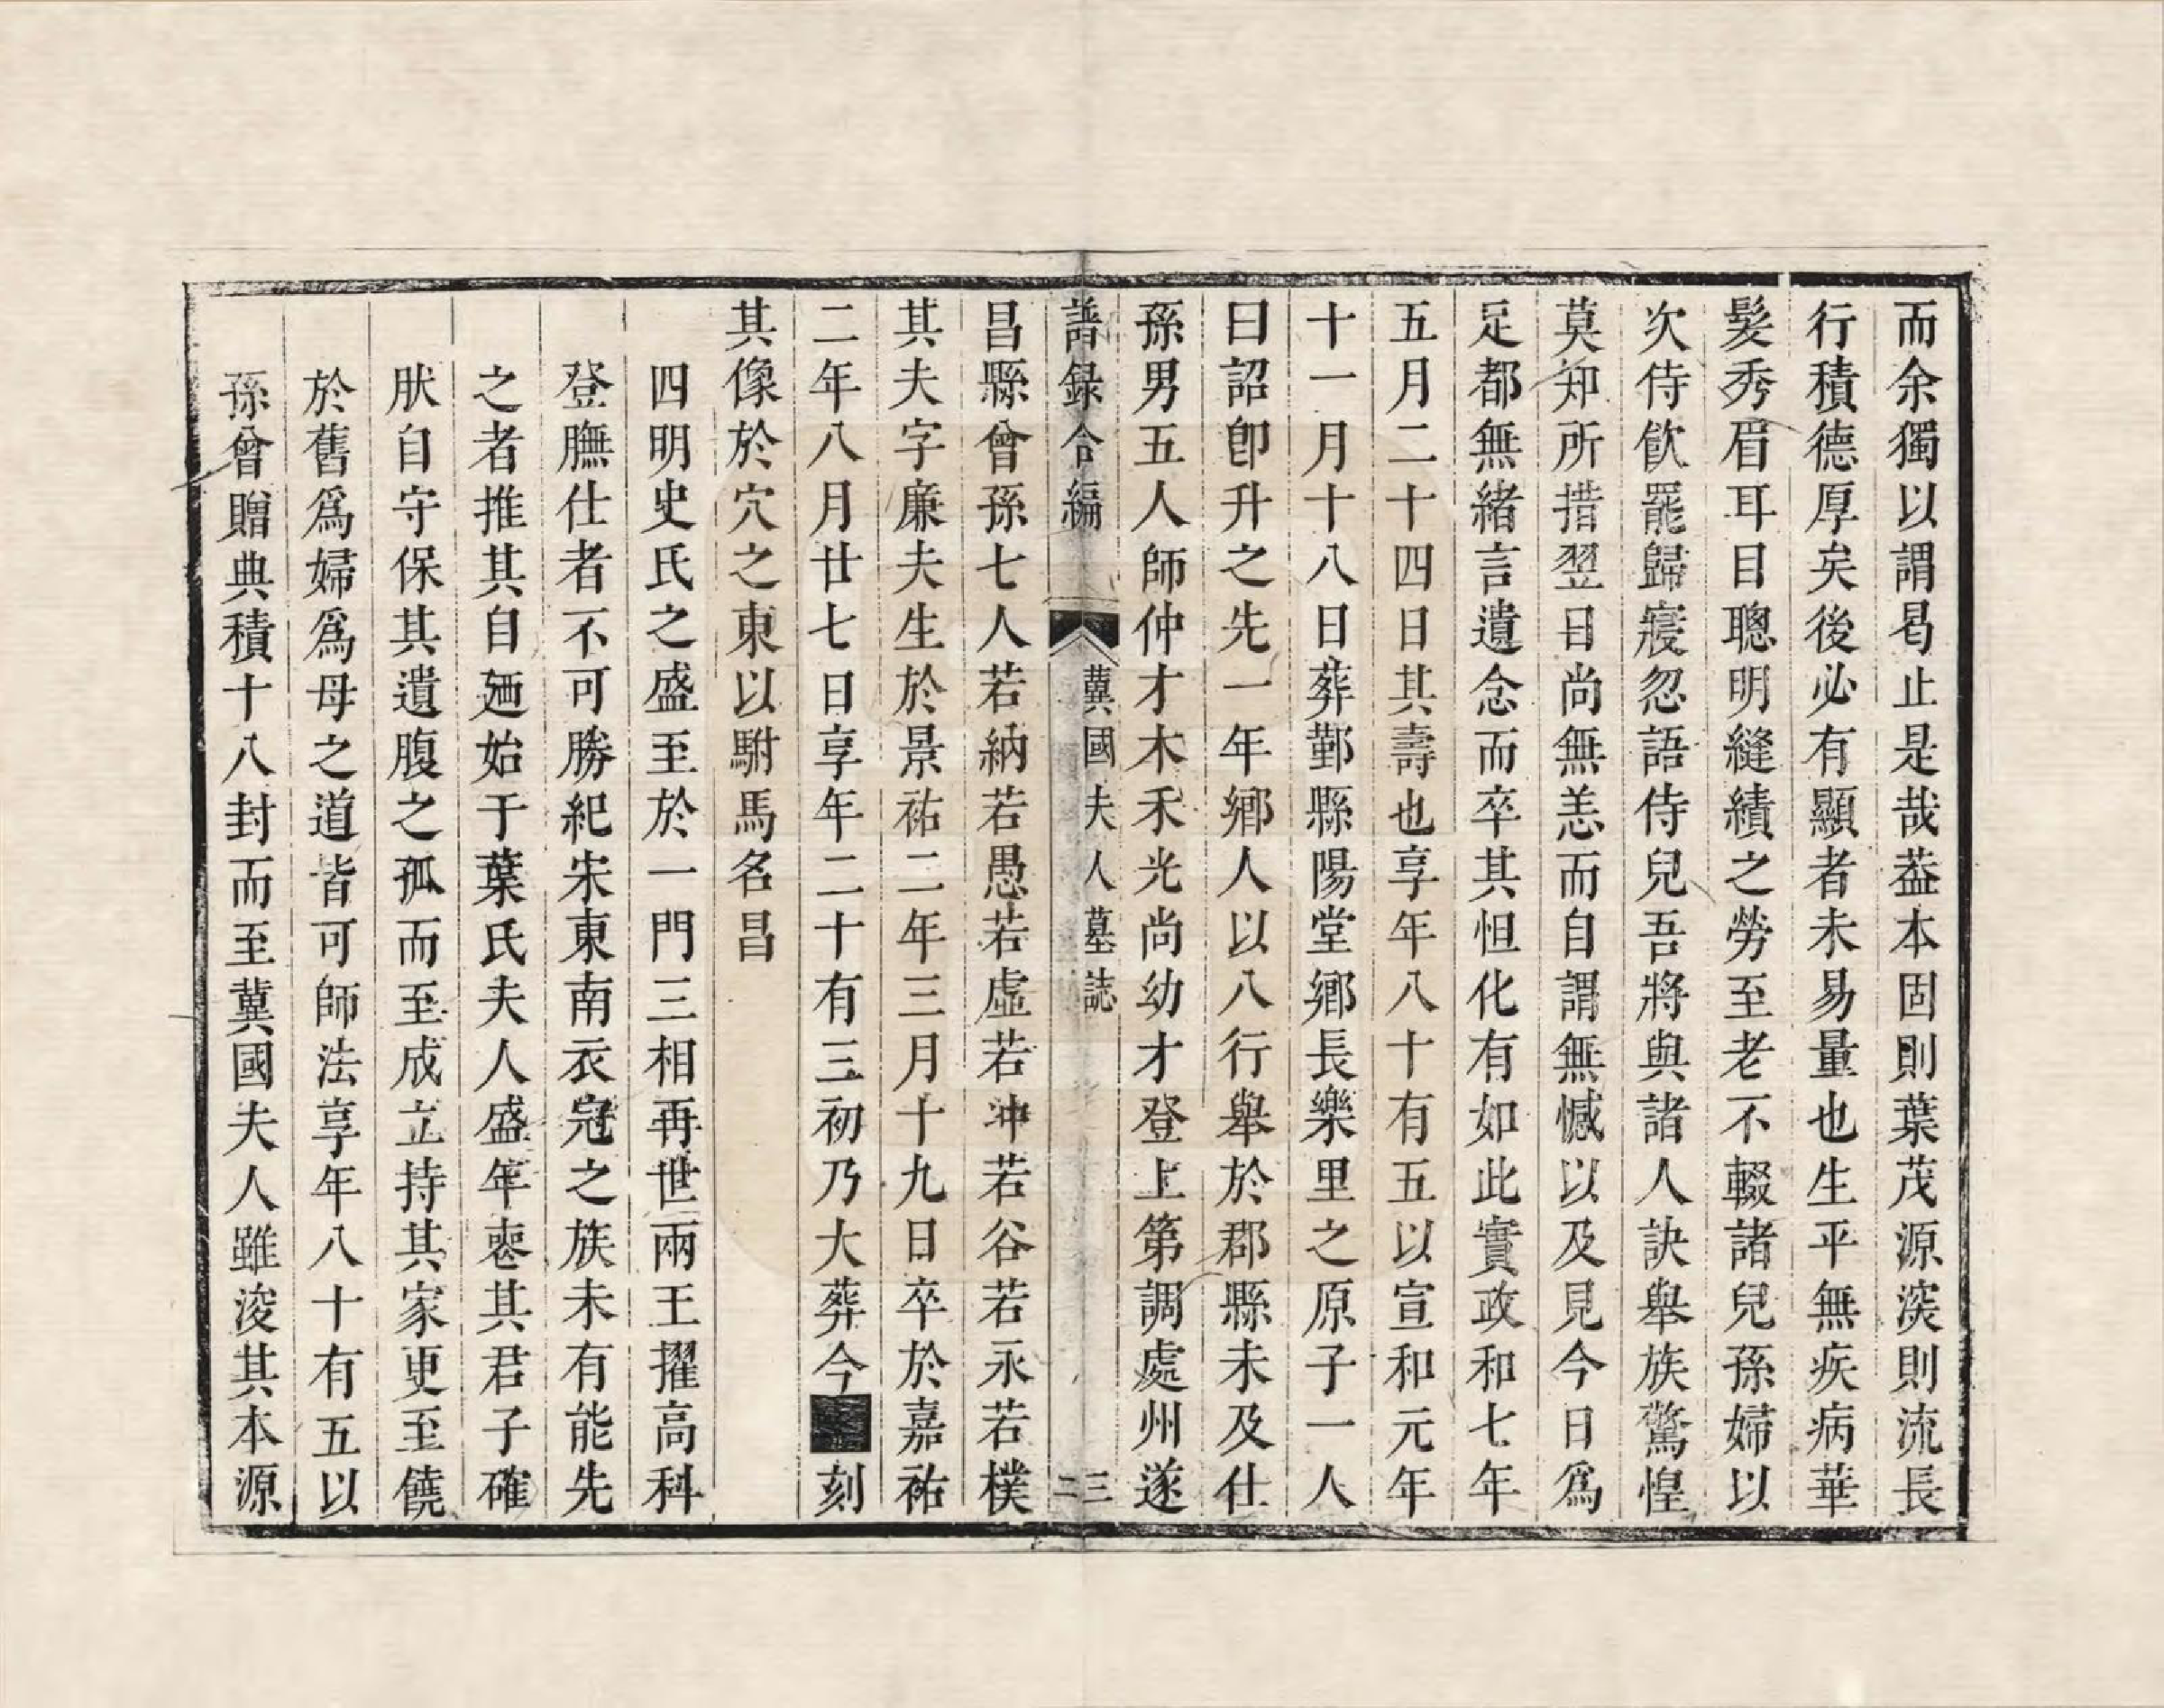 而余獨以謂曷止是哉葢本固則葉茂源深則流長
行積德厚矣後必有顯者未易量也生平無疾病華
髮秀眉耳目聰明縫績之勞至老不輟諸兒孫婦以
次侍飲罷歸寢忽語侍兒吾將與諸人訣舉族驚惶
莫知所措翌日尚無恙而自謂無憾以及見今日為
足都無緒言遺念而卒其怛化有如此實政和七年
五月二十四日其壽也享年八十有五以宣和元年
十一月十八日葬鄞縣陽堂鄉長樂里之原子一人
曰詔卽升之先一年鄉人以八行舉於郡縣未及仕
孫男五人師仲才木禾光尚幼才登上第調處州遂
譜録合編 冀國夫人墓誌 三二
昌縣曾孫七人若納若愚若虛若冲若谷若永若樸
其夫字廉夫生於景祐二年三月十九日卒於嘉祐
二年八月廿七日享年二十有三初乃大葬今刻
其像於穴之東以駙馬名昌
四明史氏之盛至於一門三相再世兩王擢高科
登膴仕者不可勝紀宋東南衣冠之族未有能先
之者推其自廼始于葉氏夫人盛年喪其君子確
肰自守保其遺腹之孤而至成立持其家更至饒
於舊為婦為母之道皆可師法享年八十有五以
孫曾贈典積十八封而至冀國夫人雖浚其本源